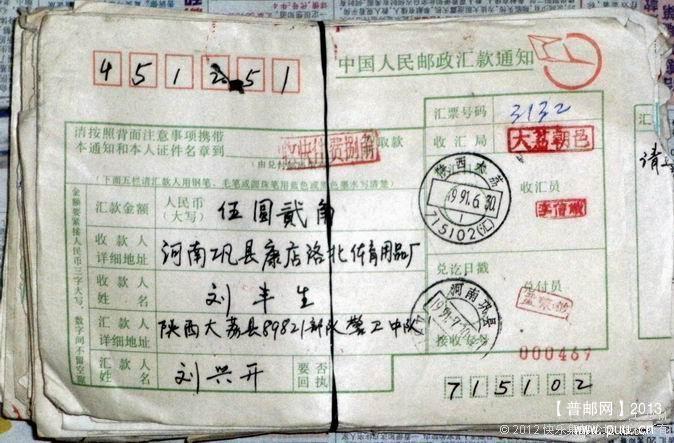 451 51
中国人民邮政汇款通知
汇票号码 3132
请按照背面注意事项携带
本通知和本人证件名章到 取款
收汇局 大荔朝邑
(下面五栏请汇款人用钢笔、毛笔或圆珠笔用蓝色或黑色墨水写清楚)
金额要紧接人民币三字大写,数字间不留空隙
汇款金额 人民币(大写) 伍圆贰角
收汇员
陕西大荔
1991.6.30
1
715102(汇)
收款人详细地址 河南巩县康店路北体育用品厂
收款人姓名 刘丰生
兑讫日戳
兑付员
汇款人详细地址 陕西大荔县89821部队警卫中队
河南巩县
接收号码
000467
汇款人姓名 刘兴开
要否回执
715102
汇
【普邮网】2013
© 2012
www.puu.cn